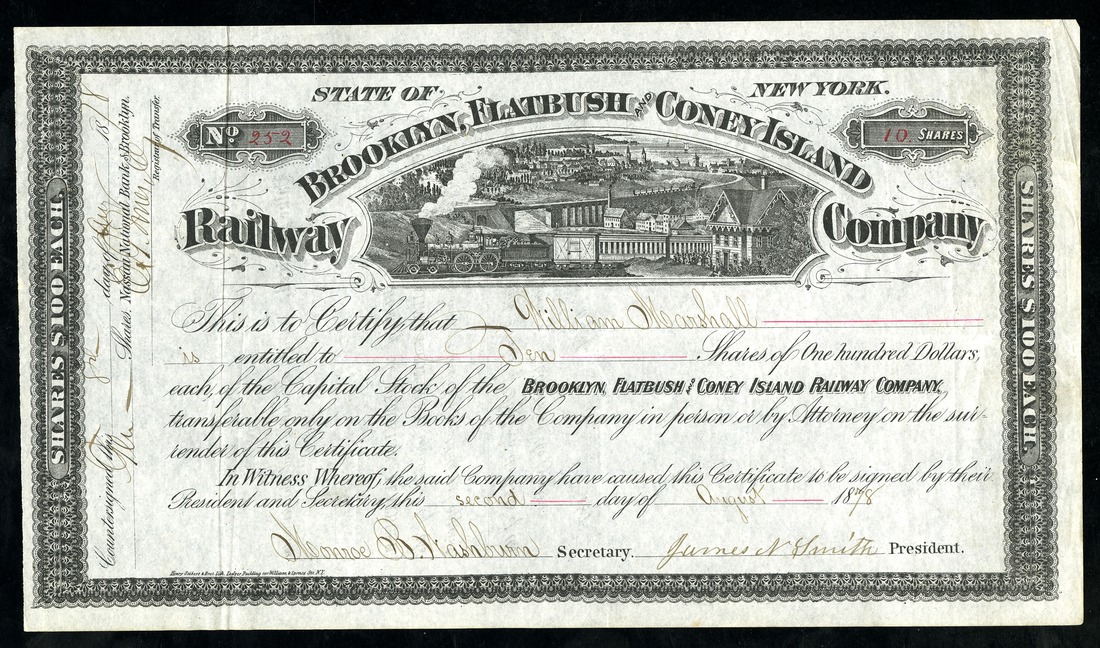 STATE OF NEW YORK.
No 252
BROOKLYN, FLATBUSH AND CONEY ISLAND
10 SHARES
Railway Company
This is to Certify that William Marshall
is entitled to Ten Shares of One hundred Dollars,
each, of the Capital Stock of the BROOKLYN, FLATBUSH AND CONEY ISLAND RAILWAY COMPANY,
transferable only on the Books of the Company in person or by Attorney on the sur-
render of this Certificate.
In Witness Whereof, the said Company have caused this Certificate to be signed by their
President and Secretary, this second day of August 1878
Monroe B. Washburn Secretary. James N. Smith President.
SHARES $100 EACH.
SHARES $100 EACH.
Countersigned this day of 1878
Shares, Nassau National Bank of Brooklyn.
Registrar of Transfer.